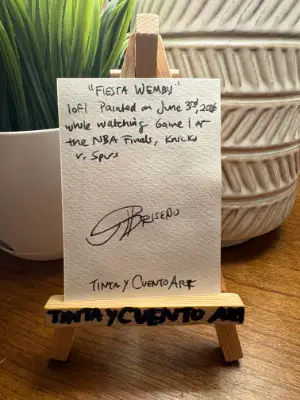 "FIESTA WEMBY"
1 of 1 Painted on June 3rd, 2026
while watching Game 1 of
the NBA Finals, Knicks
v. Spurs
BRISEÑO
TINTA Y CUENTO ART
TINTA Y CUENTO ART